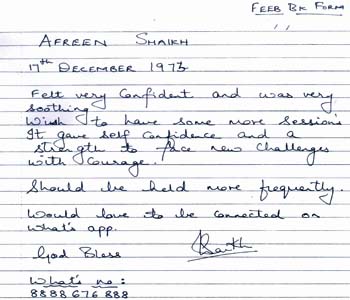 FEEB BK FORM
AFREEN SHAIKH
17th DECEMBER 1973
Felt very Confident and was very
soothing
Wish to have some more Sessions
It gave self Confidence and a
strength to face new Challenges
with Courage.
Should be held more frequently.
Would love to be connected on
what's app.
God Bless
What's no:
8888 676 888